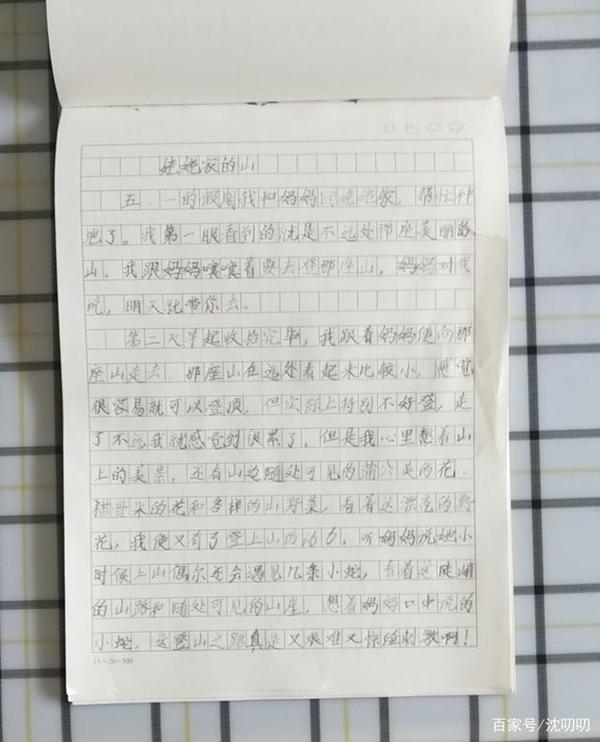 姥姥家的山
五.一的假期我和妈妈回姥姥家,
地了。我第一眼看到的就是不远处那座美丽的
山。我跟妈妈嚷嚷着要去登那座山,妈妈对我
说,明天就带你去。
第二天早起收拾完毕,我跟着妈妈便向那
座山走去.那座山在远处看起来比较小,感觉
很容易就可以登顶,但实际上特别不好登,走
了不远我就感觉到很累了,但是我心里想着山
上的美景,还有山边随处可见的蒲公英的花、
的花和多样的山野菜,看着这漂亮的野
花,我便又有了登上山的动力,听妈妈说她小
时候上山偶尔还会遇见几条小蛇,看着这陡峭
的山路和随处可见的山崖,想着妈妈口中说的
小蛇,这登山之路真是又艰难又惊险刺激啊!
15×20=300
百家号/沈叨叨